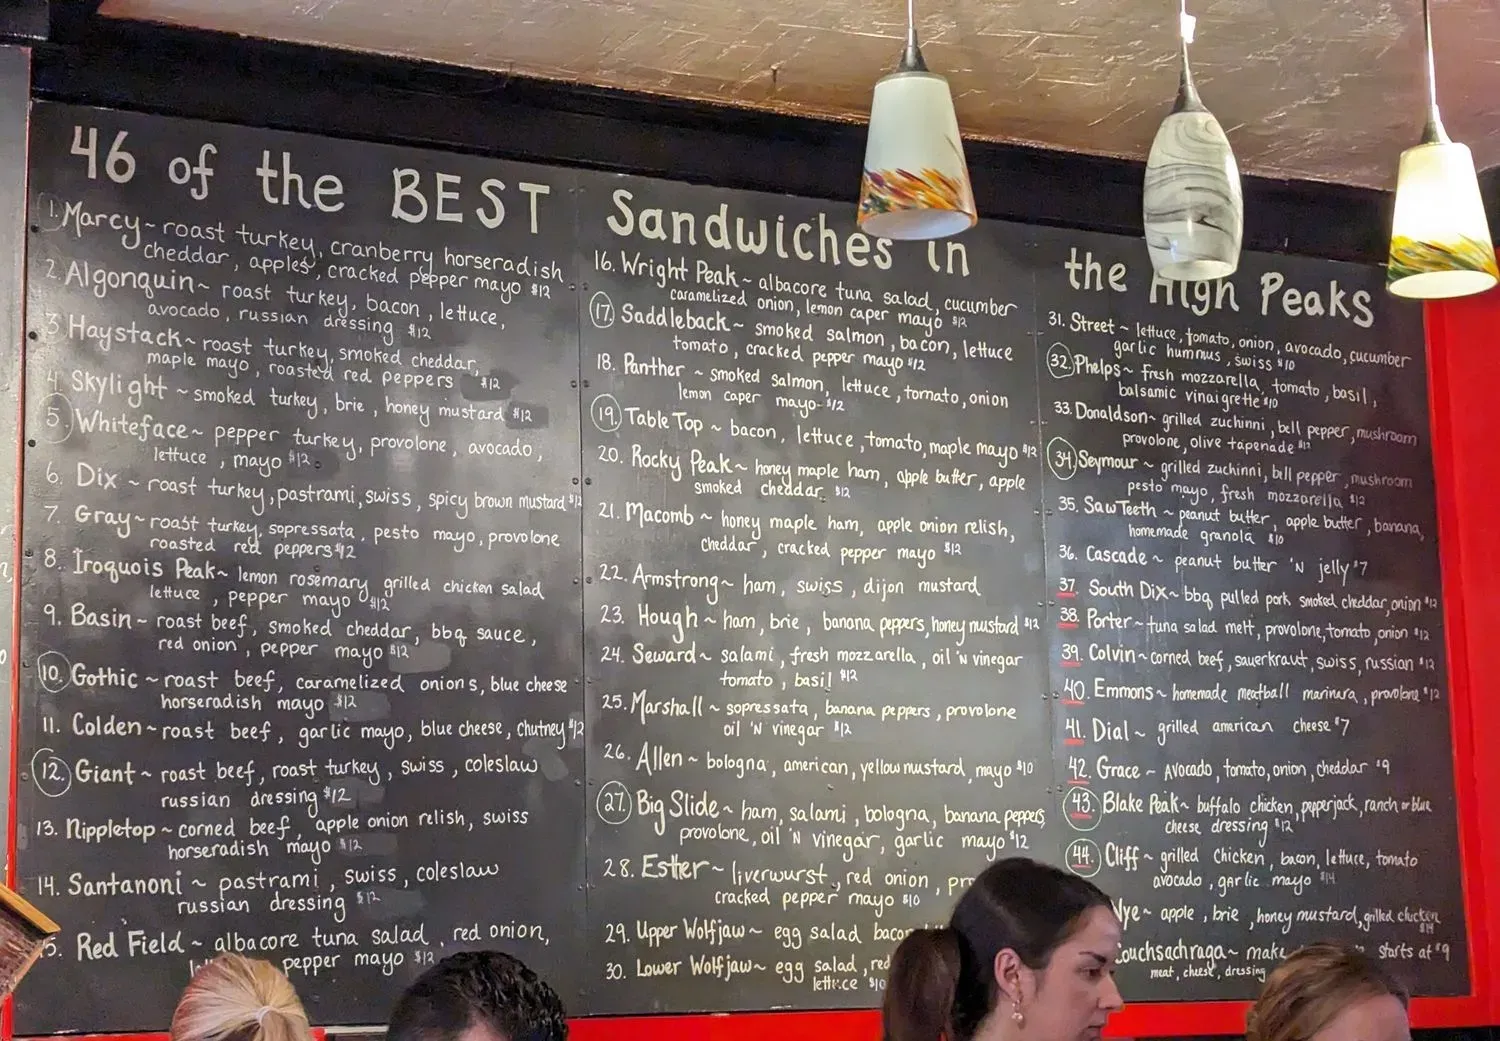 46 of the BEST Sandwiches in the High Peaks
1. Marcy ~ roast turkey, cranberry horseradish
cheddar, apples, cracked pepper mayo $12
2. Algonquin ~ roast turkey, bacon, lettuce,
avocado, russian dressing $12
3. Haystack ~ roast turkey, smoked cheddar,
maple mayo, roasted red peppers $12
4. Skylight ~ smoked turkey, brie, honey mustard $12
5. Whiteface ~ pepper turkey, provolone, avocado,
lettuce, mayo $12
6. Dix ~ roast turkey, pastrami, swiss, spicy brown mustard $12
7. Gray ~ roast turkey, sopressata, pesto mayo, provolone
roasted red peppers $12
8. Iroquois Peak ~ lemon rosemary grilled chicken salad
lettuce, pepper mayo $12
9. Basin ~ roast beef, smoked cheddar, bbq sauce,
red onion, pepper mayo $12
10. Gothic ~ roast beef, caramelized onions, blue cheese
horseradish mayo $12
11. Colden ~ roast beef, garlic mayo, blue cheese, chutney $12
12. Giant ~ roast beef, roast turkey, swiss, coleslaw
russian dressing $12
13. Nippletop ~ corned beef, apple onion relish, swiss
horseradish mayo $12
14. Santanoni ~ pastrami, swiss, coleslaw
russian dressing $12
5. Red Field ~ albacore tuna salad, red onion,
pepper mayo $12
16. Wright Peak ~ albacore tuna salad, cucumber
caramelized onion, lemon caper mayo $12
17. Saddleback ~ smoked salmon, bacon, lettuce
tomato, cracked pepper mayo $12
18. Panther ~ smoked salmon, lettuce, tomato, onion
lemon caper mayo $12
19. Table Top ~ bacon, lettuce, tomato, maple mayo $12
20. Rocky Peak ~ honey maple ham, apple butter, apple
smoked cheddar $12
21. Macomb ~ honey maple ham, apple onion relish,
cheddar, cracked pepper mayo $12
22. Armstrong ~ ham, swiss, dijon mustard
23. Hough ~ ham, brie, banana peppers, honey mustard $12
24. Seward ~ salami, fresh mozzarella, oil 'N vinegar
tomato, basil $12
25. Marshall ~ sopressata, banana peppers, provolone
oil 'N vinegar $12
26. Allen ~ bologna, american, yellow mustard, mayo $10
27. Big Slide ~ ham, salami, bologna, banana peppers,
provolone, oil 'N vinegar, garlic mayo $12
28. Esther ~ liverwurst, red onion,
cracked pepper mayo $10
29. Upper Wolfjaw ~ egg salad bacon
30. Lower Wolfjaw ~ egg salad, red
lettuce $10
31. Street ~ lettuce, tomato, onion, avocado, cucumber
garlic humnus, swiss $10
32. Phelps ~ fresh mozzarella, tomato, basil,
balsamic vinaigrette $10
33. Donaldson ~ grilled zuchinni, bell pepper, mushroom
provolone, olive tapenade $12
34. Seymour ~ grilled zuchinni, bell pepper, mushroom
pesto mayo, fresh mozzarella $12
35. Saw Teeth ~ peanut butter, apple butter, banana,
homemade granola $10
36. Cascade ~ peanut butter 'N jelly $7
37. South Dix ~ bbq pulled pork smoked cheddar, onion $12
38. Porter ~ tuna salad melt, provolone, tomato, onion $12
39. Colvin ~ corned beef, sauerkraut, swiss, russian $12
40. Emmons ~ homemade meatball marinara, provolone $12
41. Dial ~ grilled american cheese $7
42. Grace ~ Avocado, tomato, onion, cheddar $9
43. Blake Peak ~ buffalo chicken, pepperjack, ranch or blue
cheese dressing $12
44. Cliff ~ grilled chicken, bacon, lettuce, tomato
avocado, garlic mayo $14
Nye ~ apple, brie, honey mustard, grilled chicken
$14
Couchsachraga ~ make starts at $9
meat, cheese, dressing